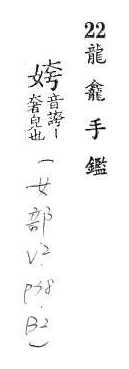 22 龍龕手鑑
嫮音誇―
奢皃也
(女部
V2.
P38.
B2)